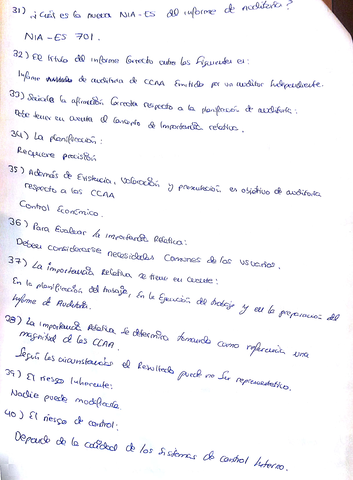 31) ¿Cuál es la nueva NIA-ES del informe de auditoría?
NIA-ES 701.
32) El título del informe correcto entre los siguientes es:
Informe de auditoría de CCAA Emitido por un auditor Independiente.
33) Señale la afirmación correcta respecto a la planificación de auditoría:
Debe tener en cuenta el concepto de Importancia relativa.
34) La planificación:
Requiere precisión
35) Además de Existencia, valoración y presentación es objetivo de auditoría
respecto a las CCAA
Control Económico.
36) Para Evaluar la importancia Relativa:
Deben considerarse necesidades comunes de los usuarios.
37) La importancia Relativa se tiene en cuenta:
En la planificación del trabajo, En la Ejecución del trabajo y en la preparación del
Informe de Auditoría.
38) La importancia Relativa se determina tomando como referencia una
magnitud de las CCAA.
Según las circunstancias el Resultado puede no ser representativo.
39) El riesgo Inherente:
Nadie puede modificarla.
40) El riesgo de control:
Depende de la calidad de los sistemas de control Interno.